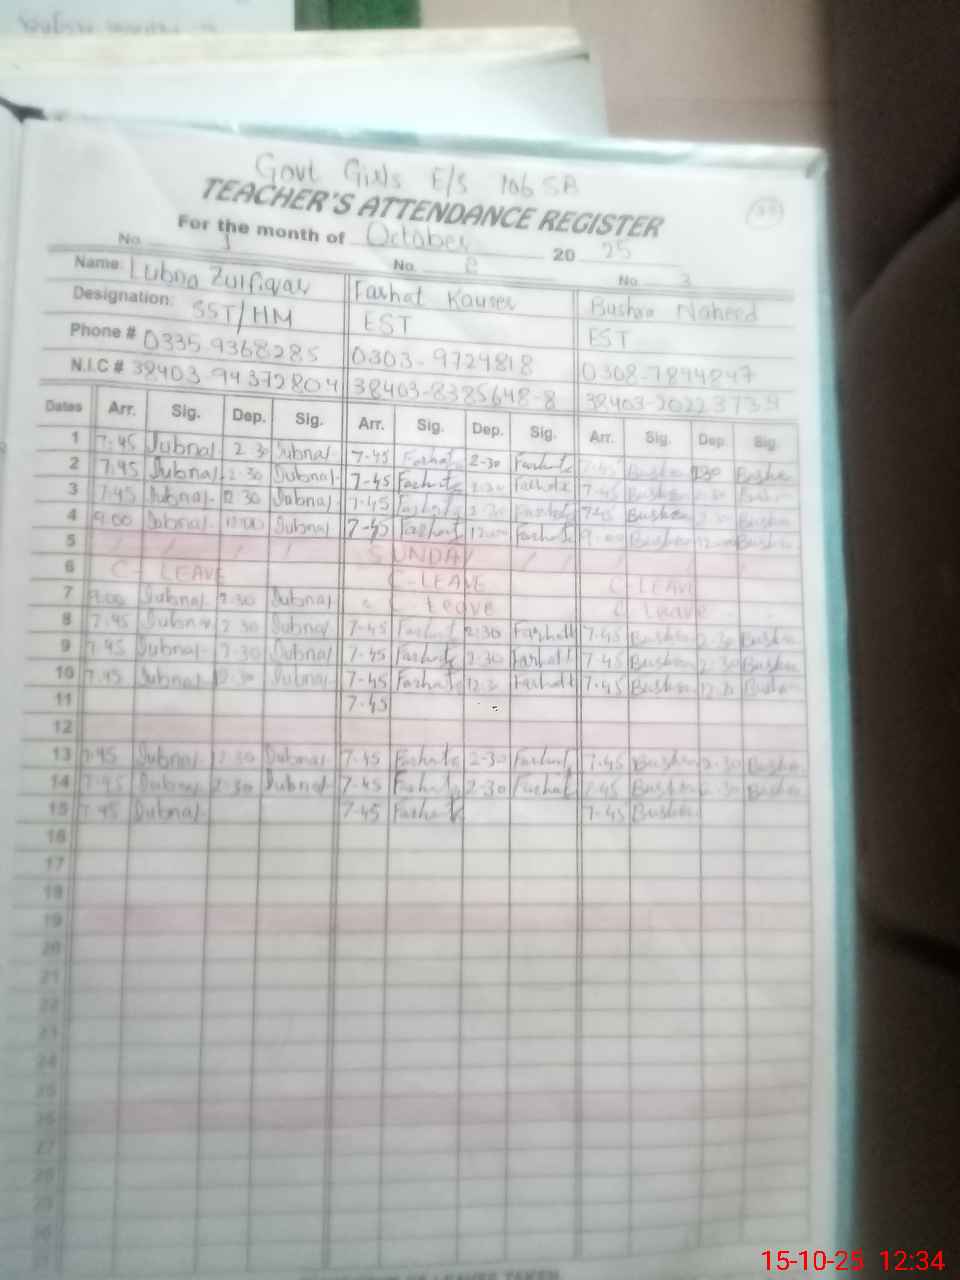 Govt Girls E/S 106 SB
TEACHER'S ATTENDANCE REGISTER
For the month of October 20 25
No. 1 No. 2 No. 3
Name: Lubna Zulfiqar Farhat Kouser Bushra Naheed
Designation: SST/HM EST EST
Phone # 0335-9368285 0303-9724818 0308-7844847
N.I.C # 38403-94372804 38403-8385648-8 38403-2022373
Dates Arr. Sig. Dep. Sig. Arr. Sig. Dep. Sig. Arr. Sig. Dep. Sig.
1 7-45 Lubna 2-30 Lubna 7-45 Farhat 2-30 Farhat 7-45 Bushra 2-30 Bushra
2 7-45 Lubna 2-30 Lubna 7-45 Farhat 2-30 Farhat 7-45 Bushra 2-30 Bushra
3 7-45 Lubna 2-30 Lubna 7-45 Farhat 2-30 Farhat 7-45 Bushra 2-30 Bushra
4 9:00 Lubna 12:00 Lubna 7-45 Farhat 12:00 Farhat 9:00 Bushra 12:00 Bushra
5 / / / / SUNDAY / / / /
6 C-LEAVE C-LEAVE C-LEAVE
7 9:00 Lubna 2-30 Lubna C-Leave C Leave
8 7-45 Lubna 2-30 Lubna 7-45 Farhat 2:30 Farhat 7-45 Bushra 2-30 Bushra
9 7-45 Lubna 2-30 Lubna 7-45 Farhat 2-30 Farhat 7-45 Bushra 2-30 Bushra
10 7-45 Lubna 12-30 Lubna 7-45 Farhat 12-3 Farhat 7-45 Bushra 12-30 Bushra
11 7-45
12
13 7-45 Lubna 2-30 Lubna 7-45 Farhat 2-30 Farhat 7-45 Bushra 2-30 Bushra
14 7-45 Lubna 2-30 Lubna 7-45 Farhat 2-30 Farhat 7-45 Bushra 2-30 Bushra
15 7-45 Lubna 7-45 Farhat 7-45 Bushra
16
17
18
19
20
21
22
23
24
25
26
27
28
29
30
15-10-25 12:34